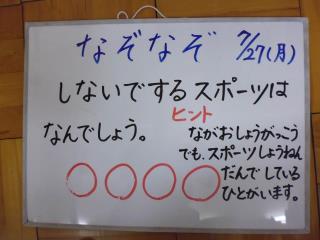 なぞなぞ 7/27(月)
しないでするスポーツは
なんでしょう。
ヒント
ながおしょうがっこう
でも、スポーツしょうねん
だんでしている
ひとがいます。